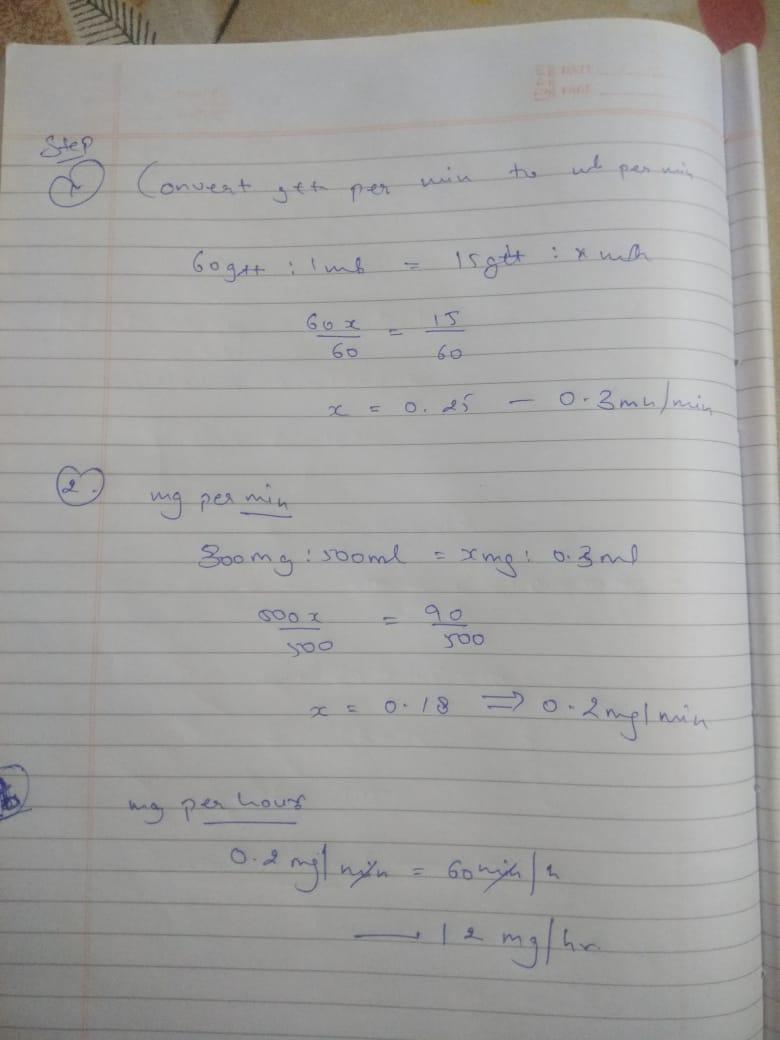 Step
1 Convert gtt per min to ml per min
60gtt : 1ml = 15gtt : x ml
60 x / 60 = 15 / 60
x = 0.25 – 0.3ml/min
2. mg per min
300mg : 500ml = x mg : 0.3ml
500 x / 500 = 90 / 500
x = 0.18 ⇒ 0.2mg/min
mg per hour
0.2 mg/min = 60min/h
— 12 mg/hr.